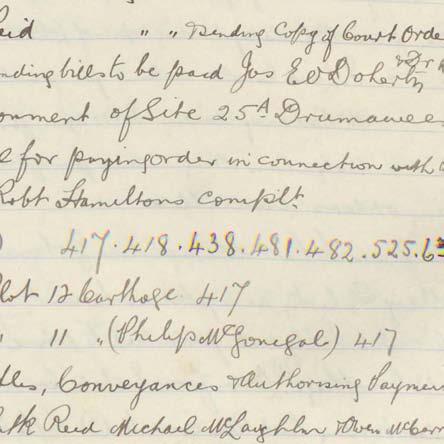 eid " " Sending Copy of Court Orde
nding bills to be paid Jas E O'Doherty & Dr
onment of Site 25A Drumawee
e for paying order in connection with
Robt Hamiltons complt.
) 417. 418. 438. 481. 482. 525. 63
lot 12 Carthage 417
" 11 " (Philip McGonegal) 417
tles, Conveyances & Authorising Paymen
atk Reid Michael McLaughlin & Owen McCarr